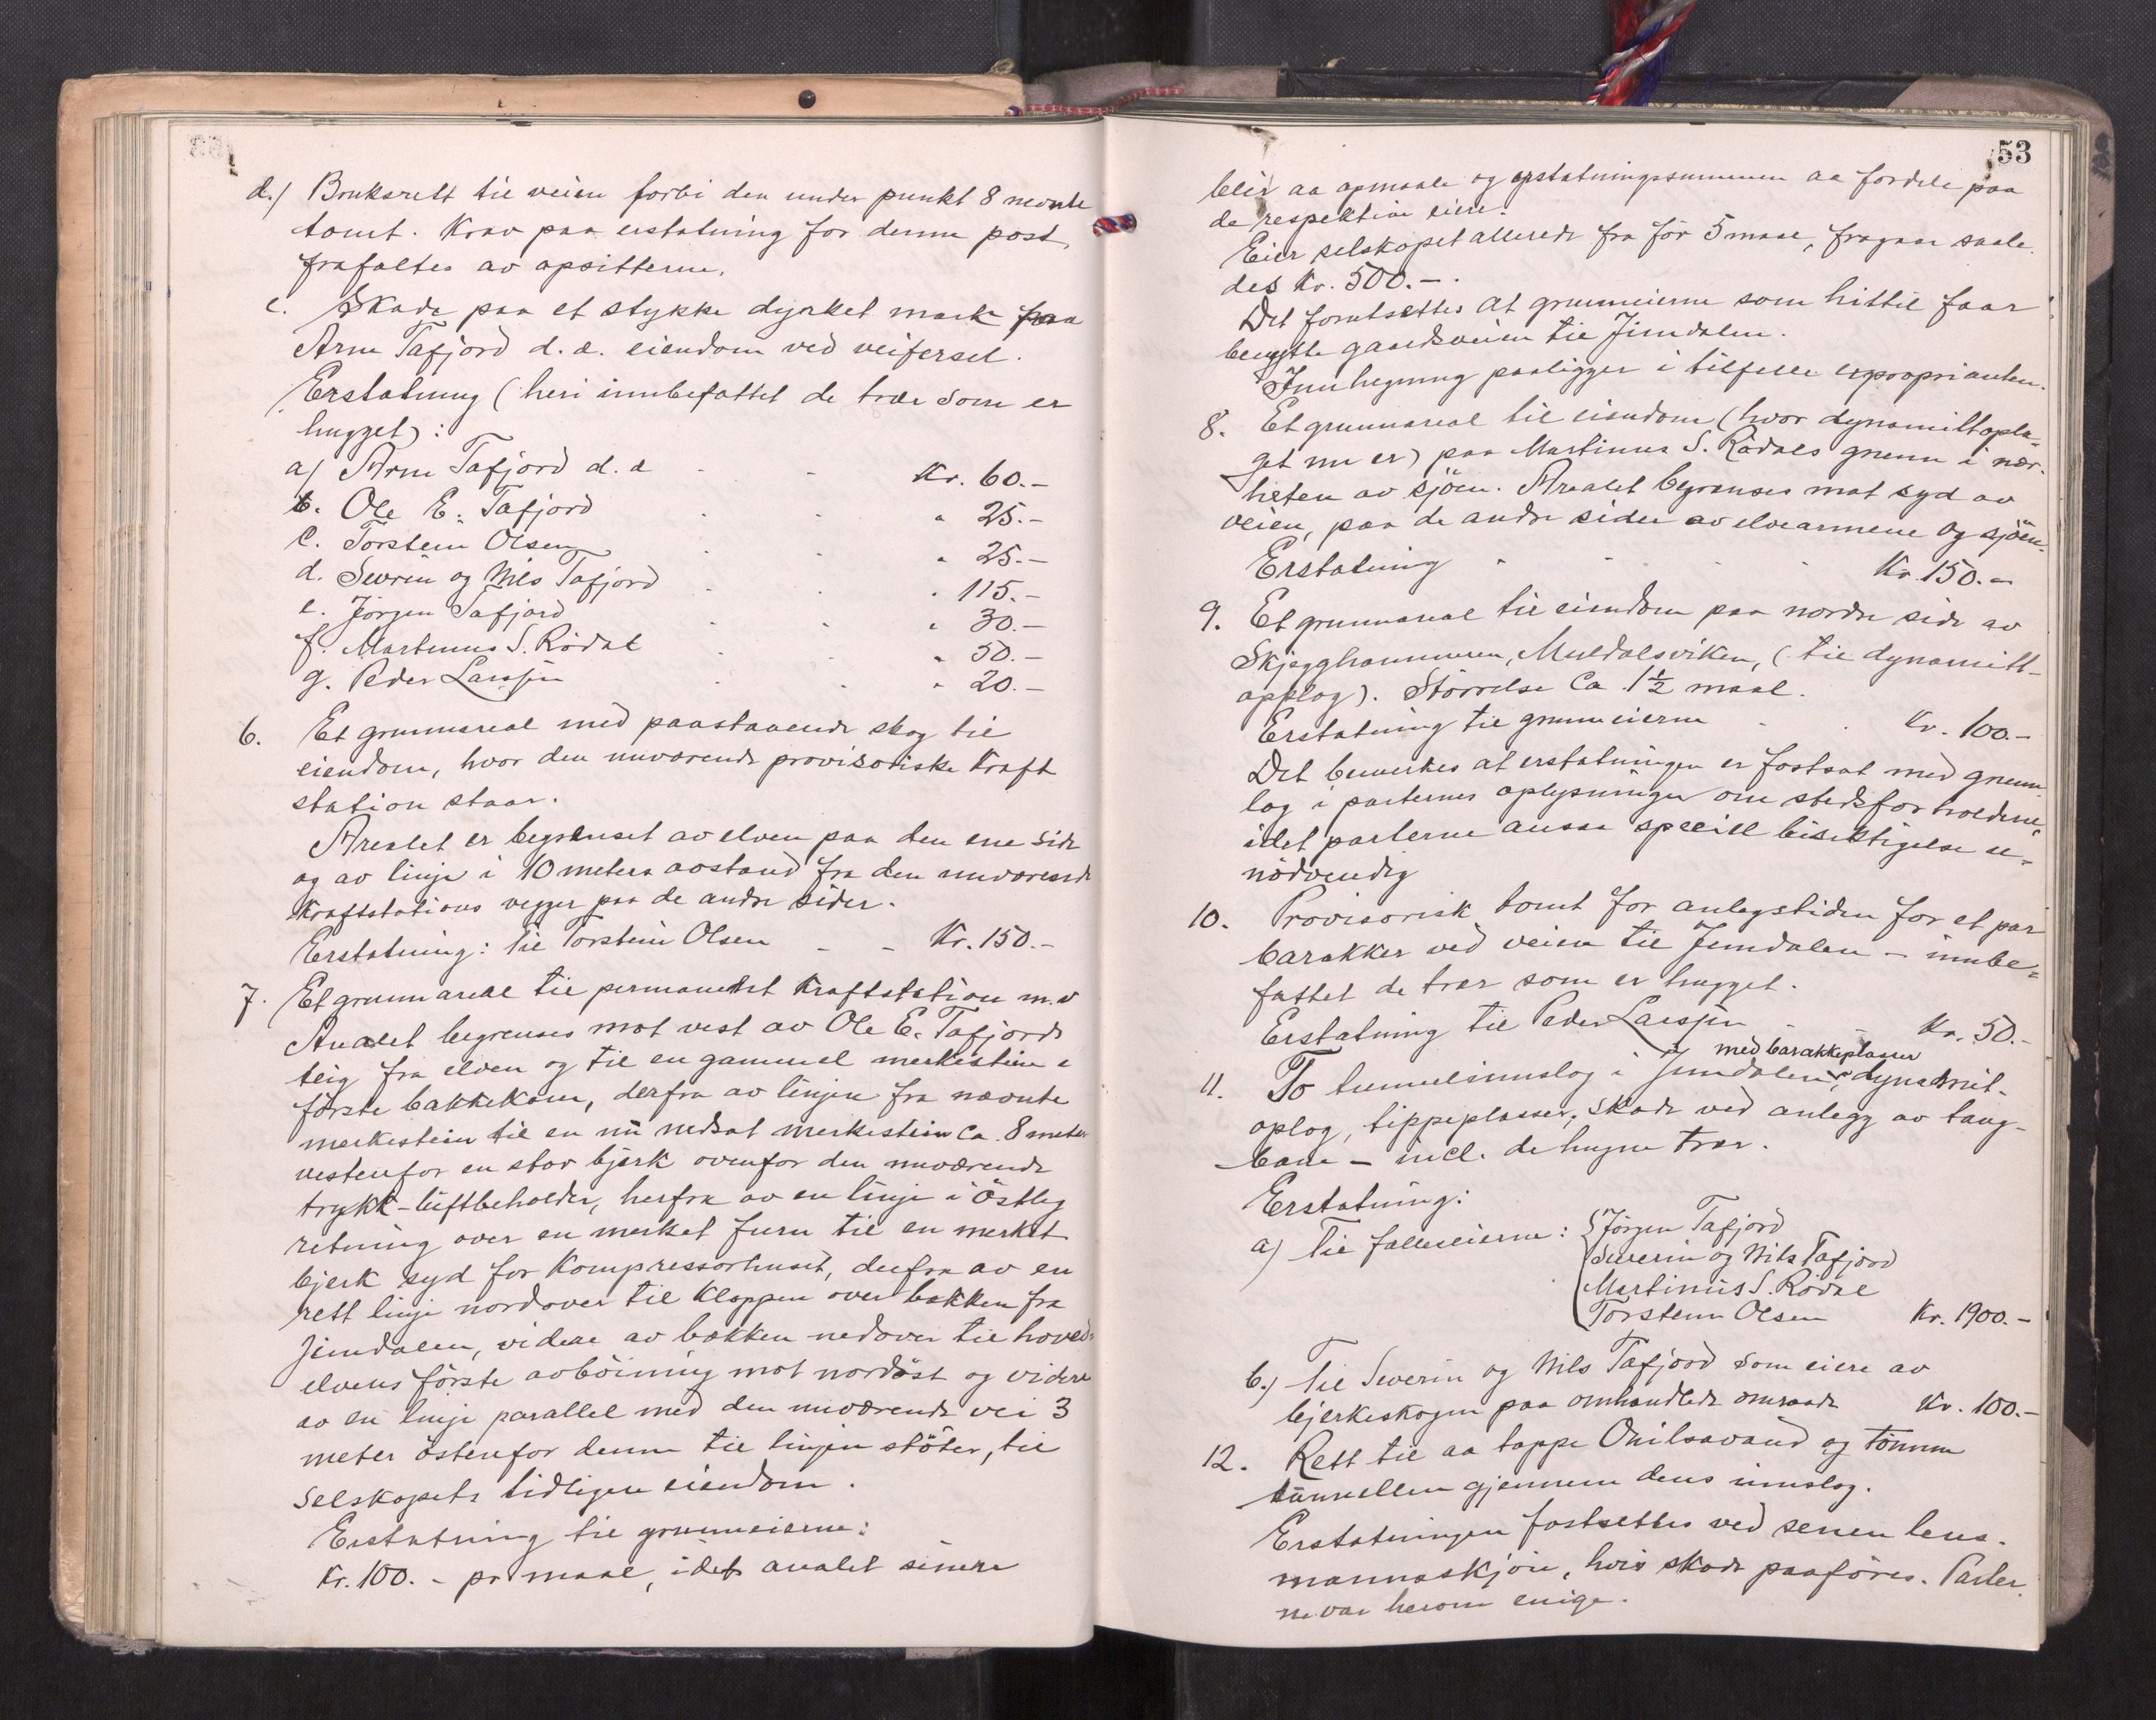 d.) Bruksrett til veien forbi den under punkt 8 nevnte
tomt. Krav paa erstatning for denne post
frafaltes av opsitterne.
e. Skade paa et stykke dyrket mark paa
Arne Tafjord d. æ. eiendom ved veiferset.
Erstatning (heri innbefattet de trær som er
hugget):
a) Arne Tafjord d. æ - - Kr. 60.-
b. Ole E. Tafjord . . " 25.-
c. Torstein Olsen . . " 25.-
d. Severin og Nils Tafjord . . " 115.-
e. Jörgen Tafjord . . " 30.-
f. Martinus S. Rödal . . " 50.-
g. Peder Larsson . . " 20.-
6. Et grunnareal med paastaaende skog til
eiendom, hvor den nuværende provisoriske Kraft
station staar.
Arealet er begrenset av elven paa den ene side
og av linje i 10 meters avstand fra den nuværende
Kraftstations vegger paa de andre sider.
Erstatning: til Torstein Olsen - - Kr. 150.-
7. Et grunnareal til permanent Kraftstation m.v
Arealet begrenses mot vest av Ole E. Tafjords
teig fra elven og til en gammel merkestein i
förste bakkekam, derfra av linjen fra nævnte
merkestein til en ny nedsat merkestein ca. 8 meter
vestenfor en stor bjerk ovenfor den nuværende
trykk-luftbeholder, herfra av en linje i östlig
retning over en merket furu til en merket
bjerk syd for Kompressorhuset, derfra av en
rett linje nordover til kloppen over bekken fra
Jimdalen, videre av bekken nedover til hoved-
elvens förste avböining mot nordöst og videre
av en linje parallel med den nuværende vei 3
meter östenfor denne til linjen stöter, til
selskapets tidligere eiendom.
Erstatning til grunneierne:
Kr. 100.- pr maal, idet arealet sinere
53
blir aa opmaale og erstatningssummen aa fordele paa
de respektive eiere.
Eier selskapet allerede fra för 5 maal, fragaar saale-
des Kr. 500.-.
Det forutsettes at grunneierne som hittil faar
benytte gaardsveien til Jimdalen.
Innhegning paaligger i tilfelle expropriaten.
8. Et grunnareal til eiendom (hvor dynamittopla-
get nu er) paa Martinus S. Rödals grunn i nær-
heten av sjöen. Arealet begrenses mot syd av
veien, paa de andre sider av elvearmene og sjöen.
Erstatning - - - - Kr. 150.-
9. Et grunnareal til eiendom paa nordre side av
Skjegghammeren, Muldalsviken, (til dynamitt-
opplag). Störrelse ca. 1½ maal.
Erstatning til grunneierne - . Kr. 100.-
Det bemerkes at erstatningen er fastsat med grunn
lag i parternes oplysninger om stedsforholdene,
idet parterne ansaa speciell besiktigelse u-
nödvendig
10. Provisorisk tomt for anlegstiden for et par
barakker ved veien til Jimdalen - innbe=
fattet de trær som er hugget.
Erstatning til Peder Larsson - - Kr. 50.-
med barakkeplasser
11. To tunnelinnslag i Jimdalen, dynamit-
oplag, tippeplasser, skade ved anlegg av taug-
bane - incl. de hugne trær.
Erstatning:
a) til falleierne: Jörgen Tafjord
Severin og Nils Tafjord
Martinus S. Rödal
Torstein Olsen Kr. 1900.-
b.) Til Severin og Nils Tafjord som eiere av
bjerkeskogen paa omhandlede omraade Kr. 100.-
12. Rett til aa tappe Onilsavand og tömme
tunnellen gjennem dens innslag.
Erstatningen fastsettes ved senere lens-
mannsskjön, hvis skade paaföres. Parter
ne var herom enige.